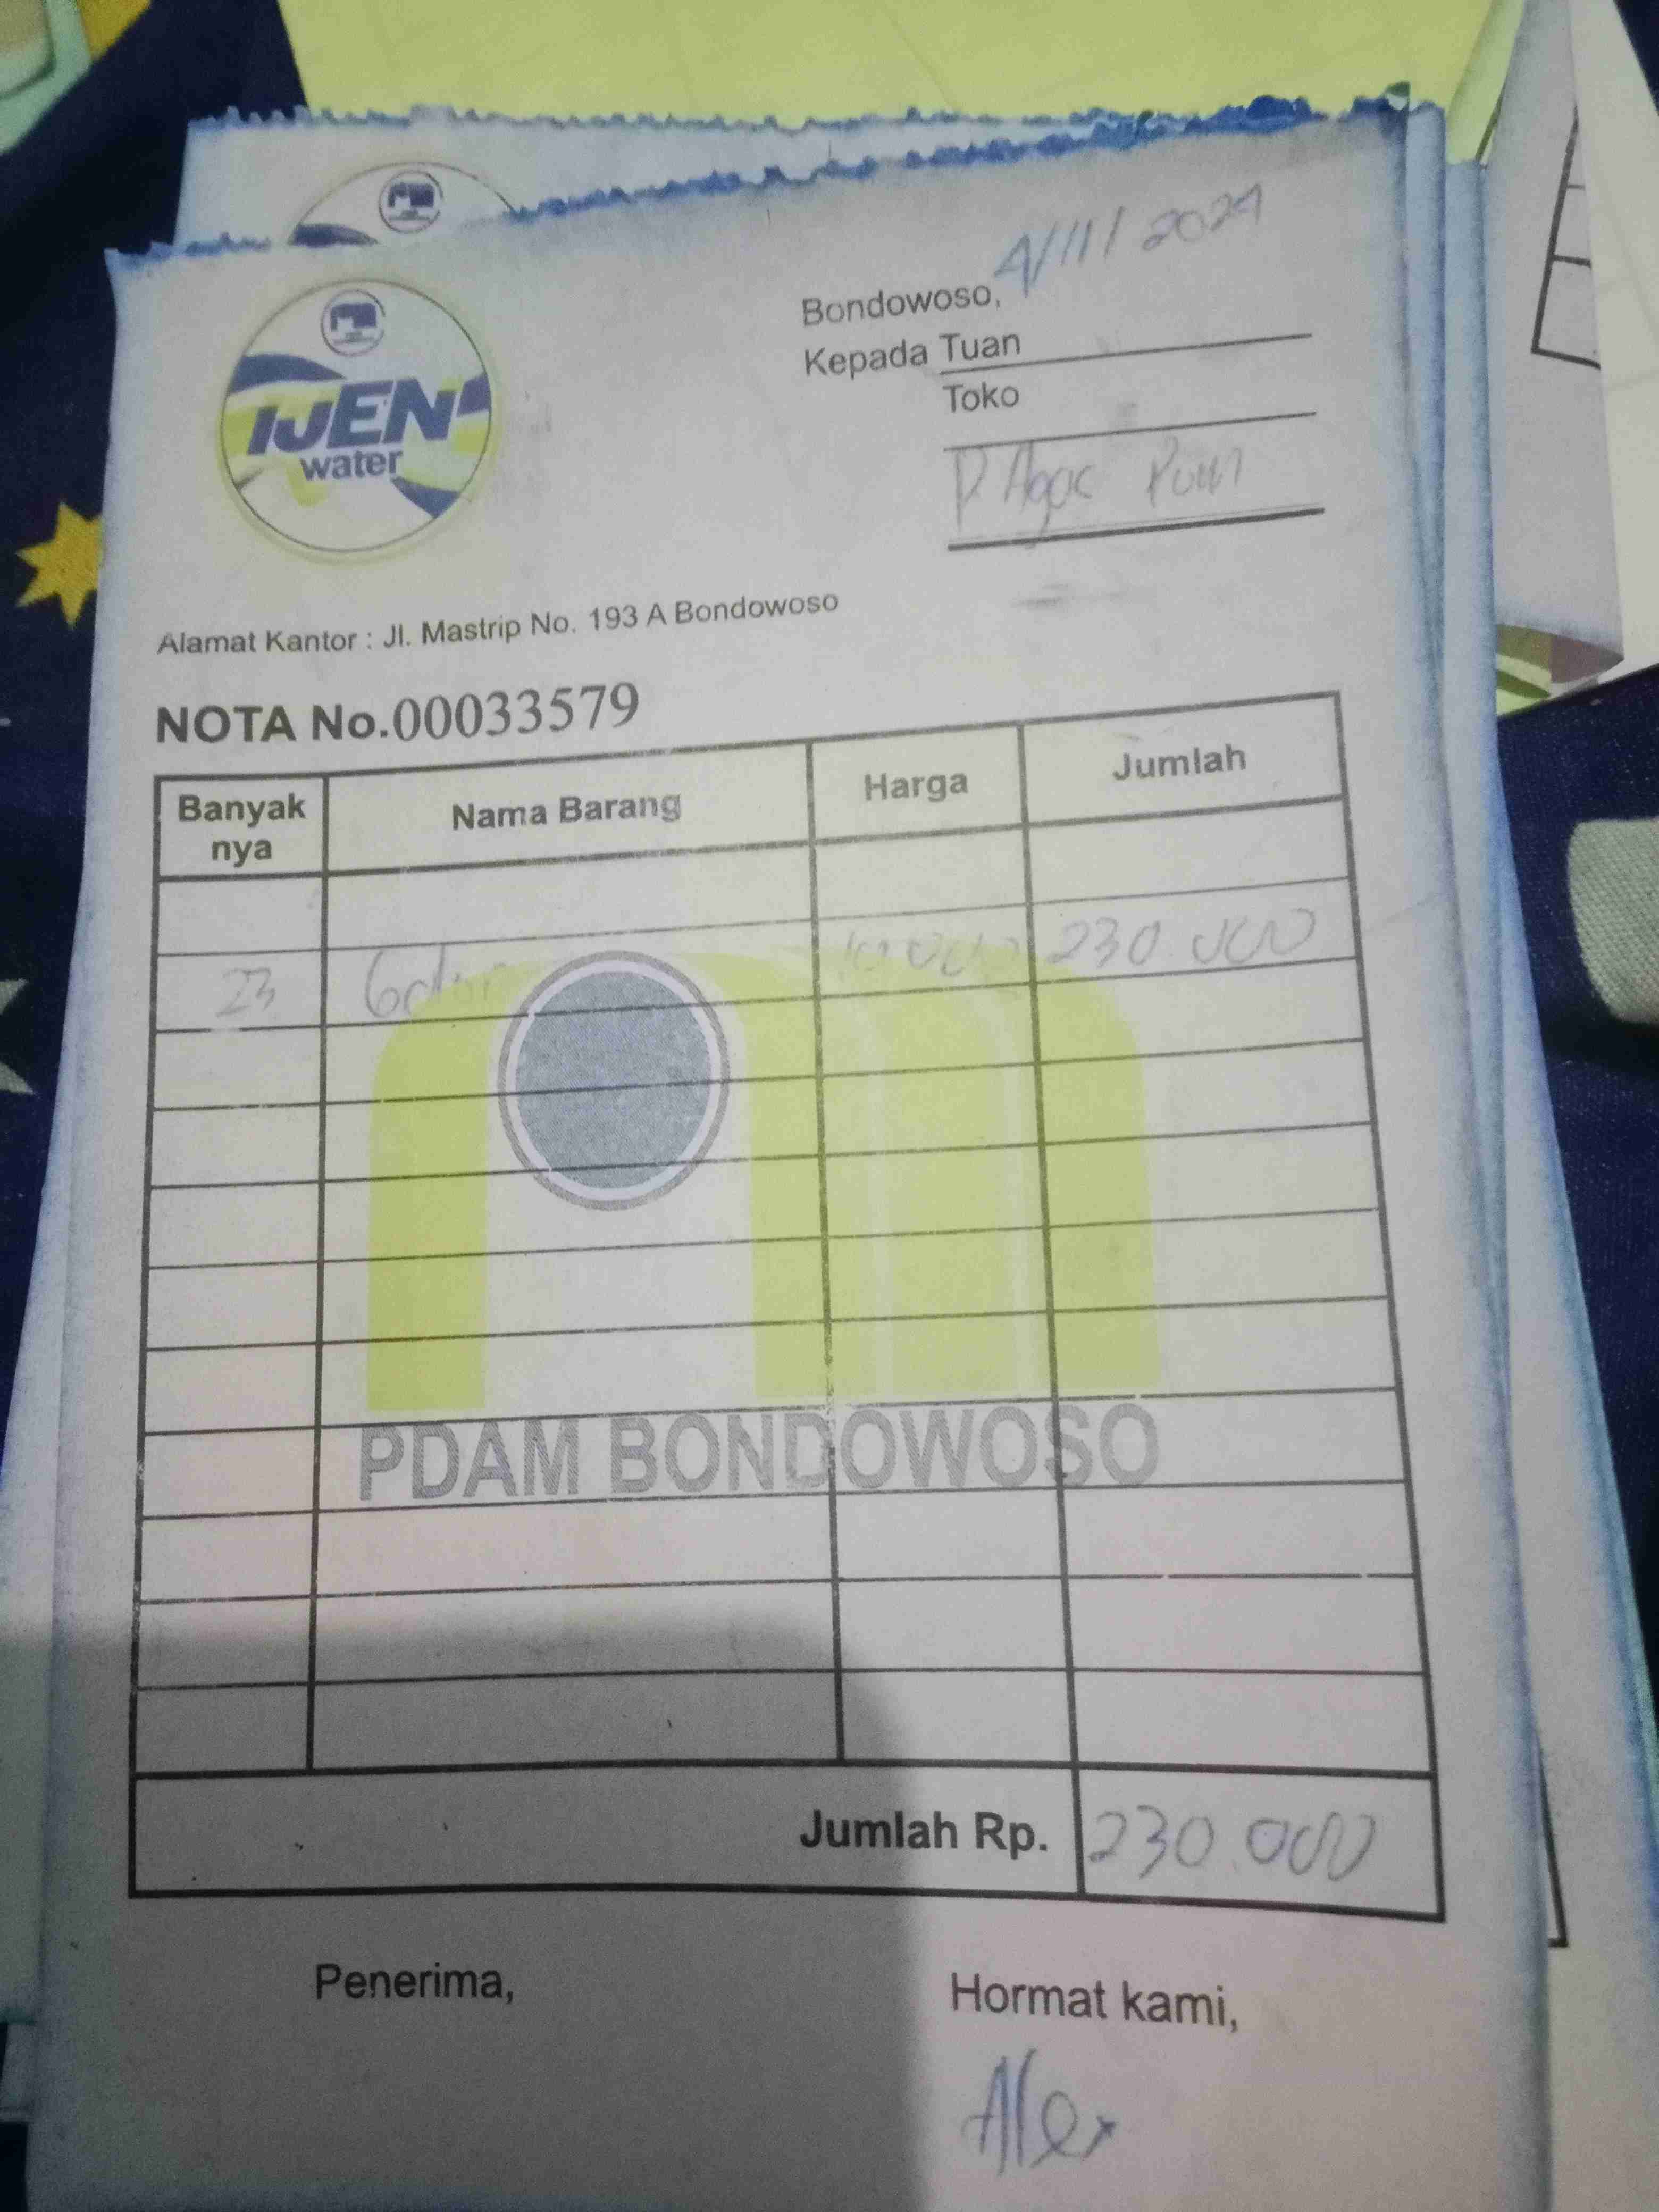 4/11/2024
Bondowoso,
Kepada Tuan
Toko
IJEN
water
P. Agos
Alamat Kantor : Jl. Mastrip No. 193 A Bondowoso
NOTA No.00033579
Banyak nya Nama Barang Harga Jumlah
23 Galon 10.000 230.000
PDAM BONDOWOSO
Jumlah Rp. 230.000
Penerima, Hormat kami,
Alex